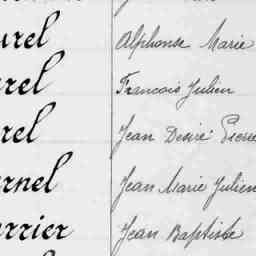 urel Alphonse Marie
rel Francois Julien
rel Jean Desiré Pierre
rnel Jean Marie Julien
rrier Jean Baptiste